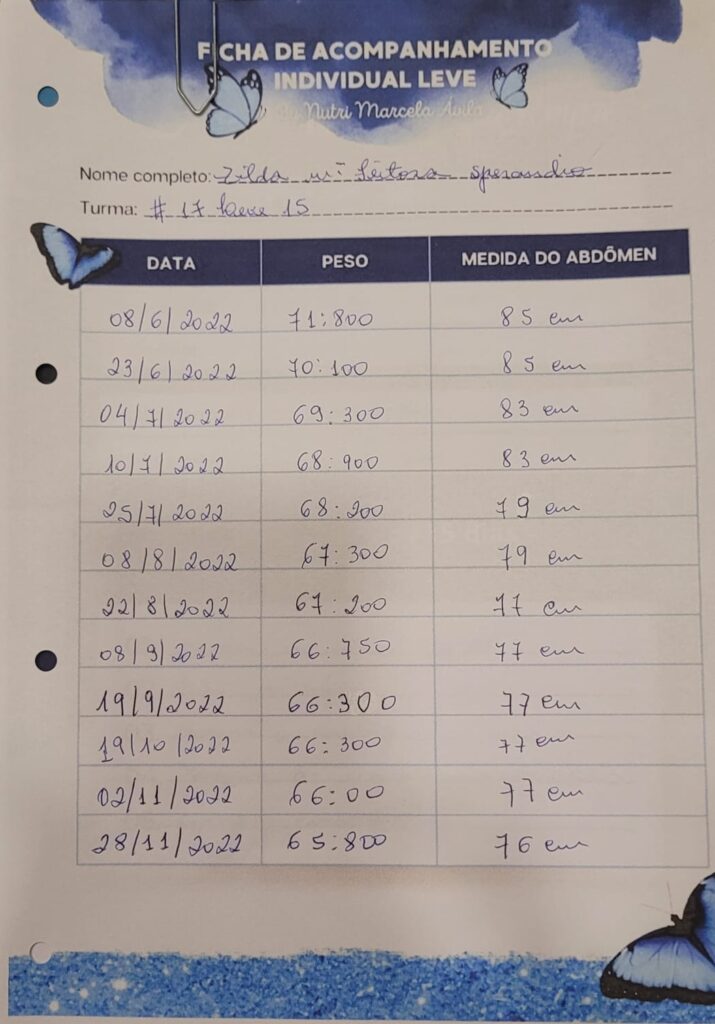 FICHA DE ACOMPANHAMENTO
INDIVIDUAL LEVE
Nutri Marcela Ávila
Nome completo: Zilda Mª Sperandio
Turma: # 17 Leve 15
DATA PESO MEDIDA DO ABDÔMEN
08/6/2022 71:800 85 cm
23/6/2022 70:100 85 cm
04/7/2022 69:300 83 cm
10/7/2022 68:900 83 cm
25/7/2022 68:200 79 cm
08/8/2022 67:300 79 cm
22/8/2022 67:200 77 cm
08/9/2022 66:750 77 cm
19/9/2022 66:300 77 cm
19/10/2022 66:300 77 cm
02/11/2022 66:00 77 cm
28/11/2022 65:800 76 cm